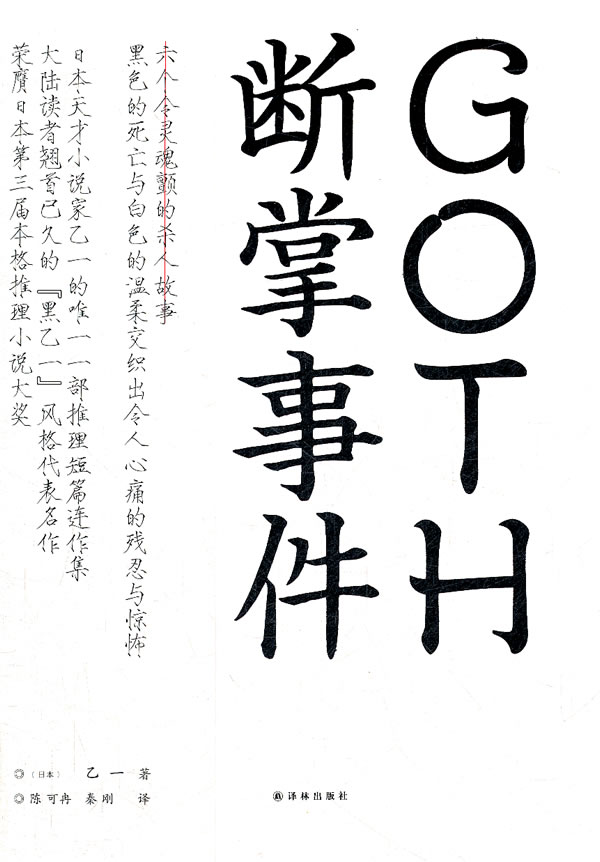 GOTH
断掌事件
六个令灵魂颤的杀人故事
黑色的死亡与白色的温柔交织出令人心痛的残忍与惊怖
日本天才小说家乙一的唯一一部推理短篇连作集
大陆读者翘首已久的『黑乙一』风格代表名作
荣膺日本第三届本格推理小说大奖
◎（日本） 乙一 著
◎ 陈可冉 秦刚 译
译林出版社